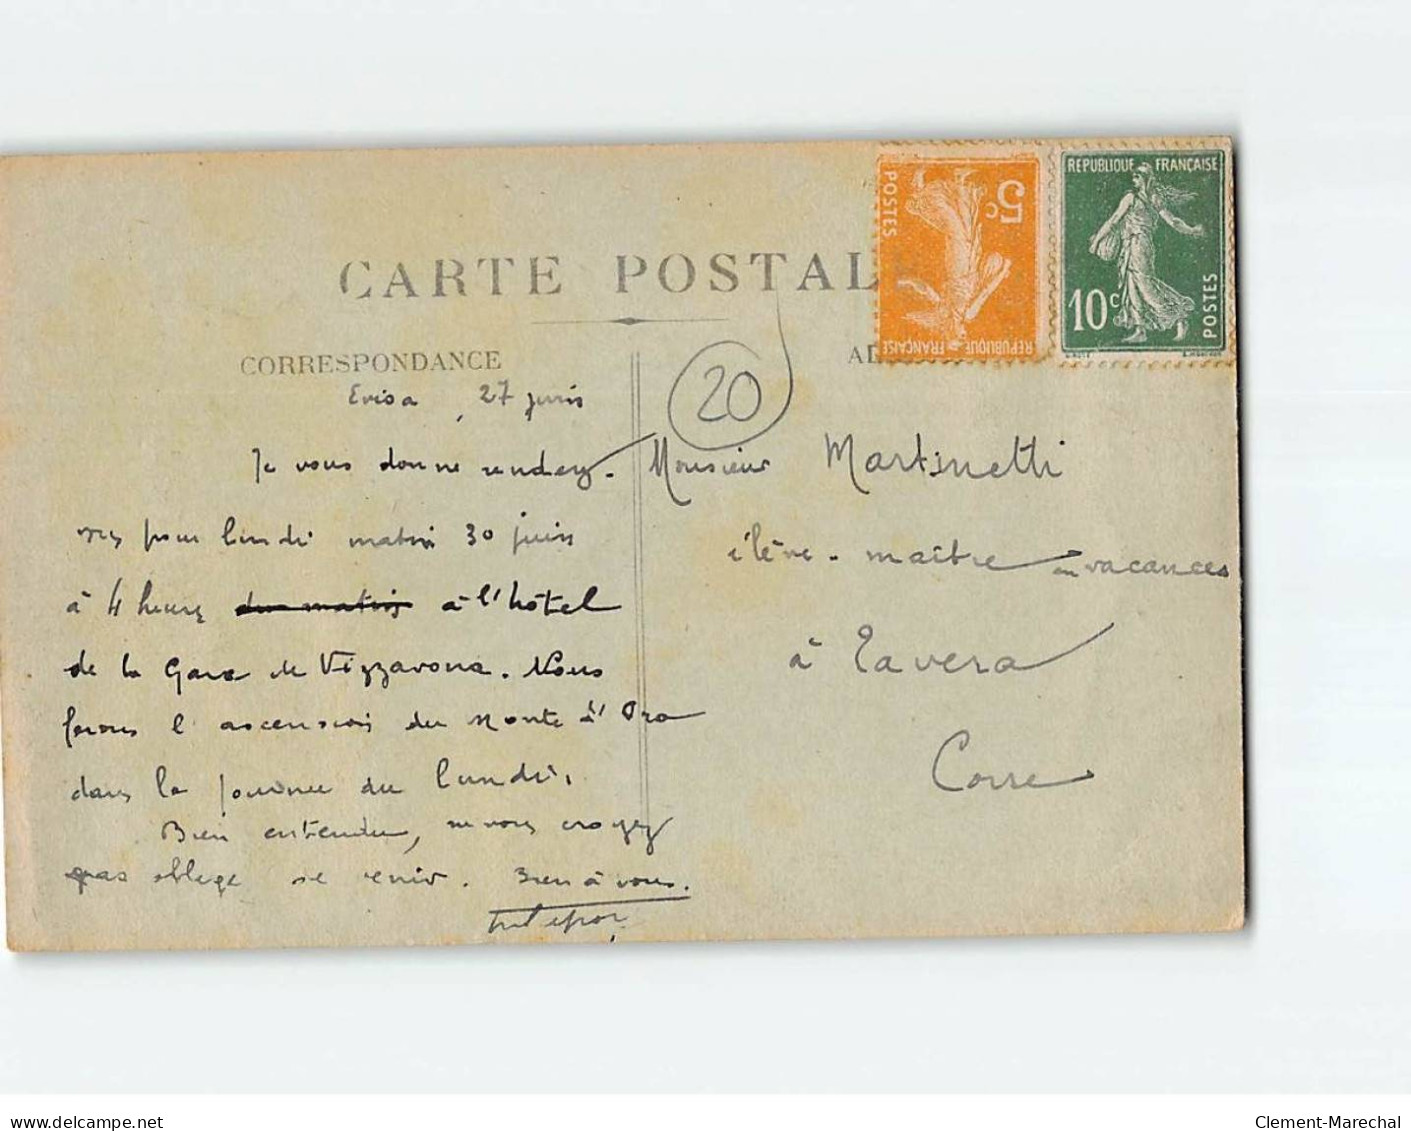 CARTE POSTAL
CORRESPONDANCE
Evisa, 27 juin
Je vous donne rendez-
vous pour lundi matin 30 juin
à 4 heures du matin à l'hôtel
de la Gare de Vizzavona. Nous
ferons l'ascension du Monte d'Oro
dans la journée du lundi.
Bien entendu, ne vous croyez
pas obligé de venir. Bien à vous.
20
Monsieur Martinetti
élève-maître en vacances
à Tavera
Corse
5c
POSTES
REPUBLIQUE FRANÇAISE
REPUBLIQUE FRANÇAISE
10c
POSTES
delcampe.net
Clement-Marechal